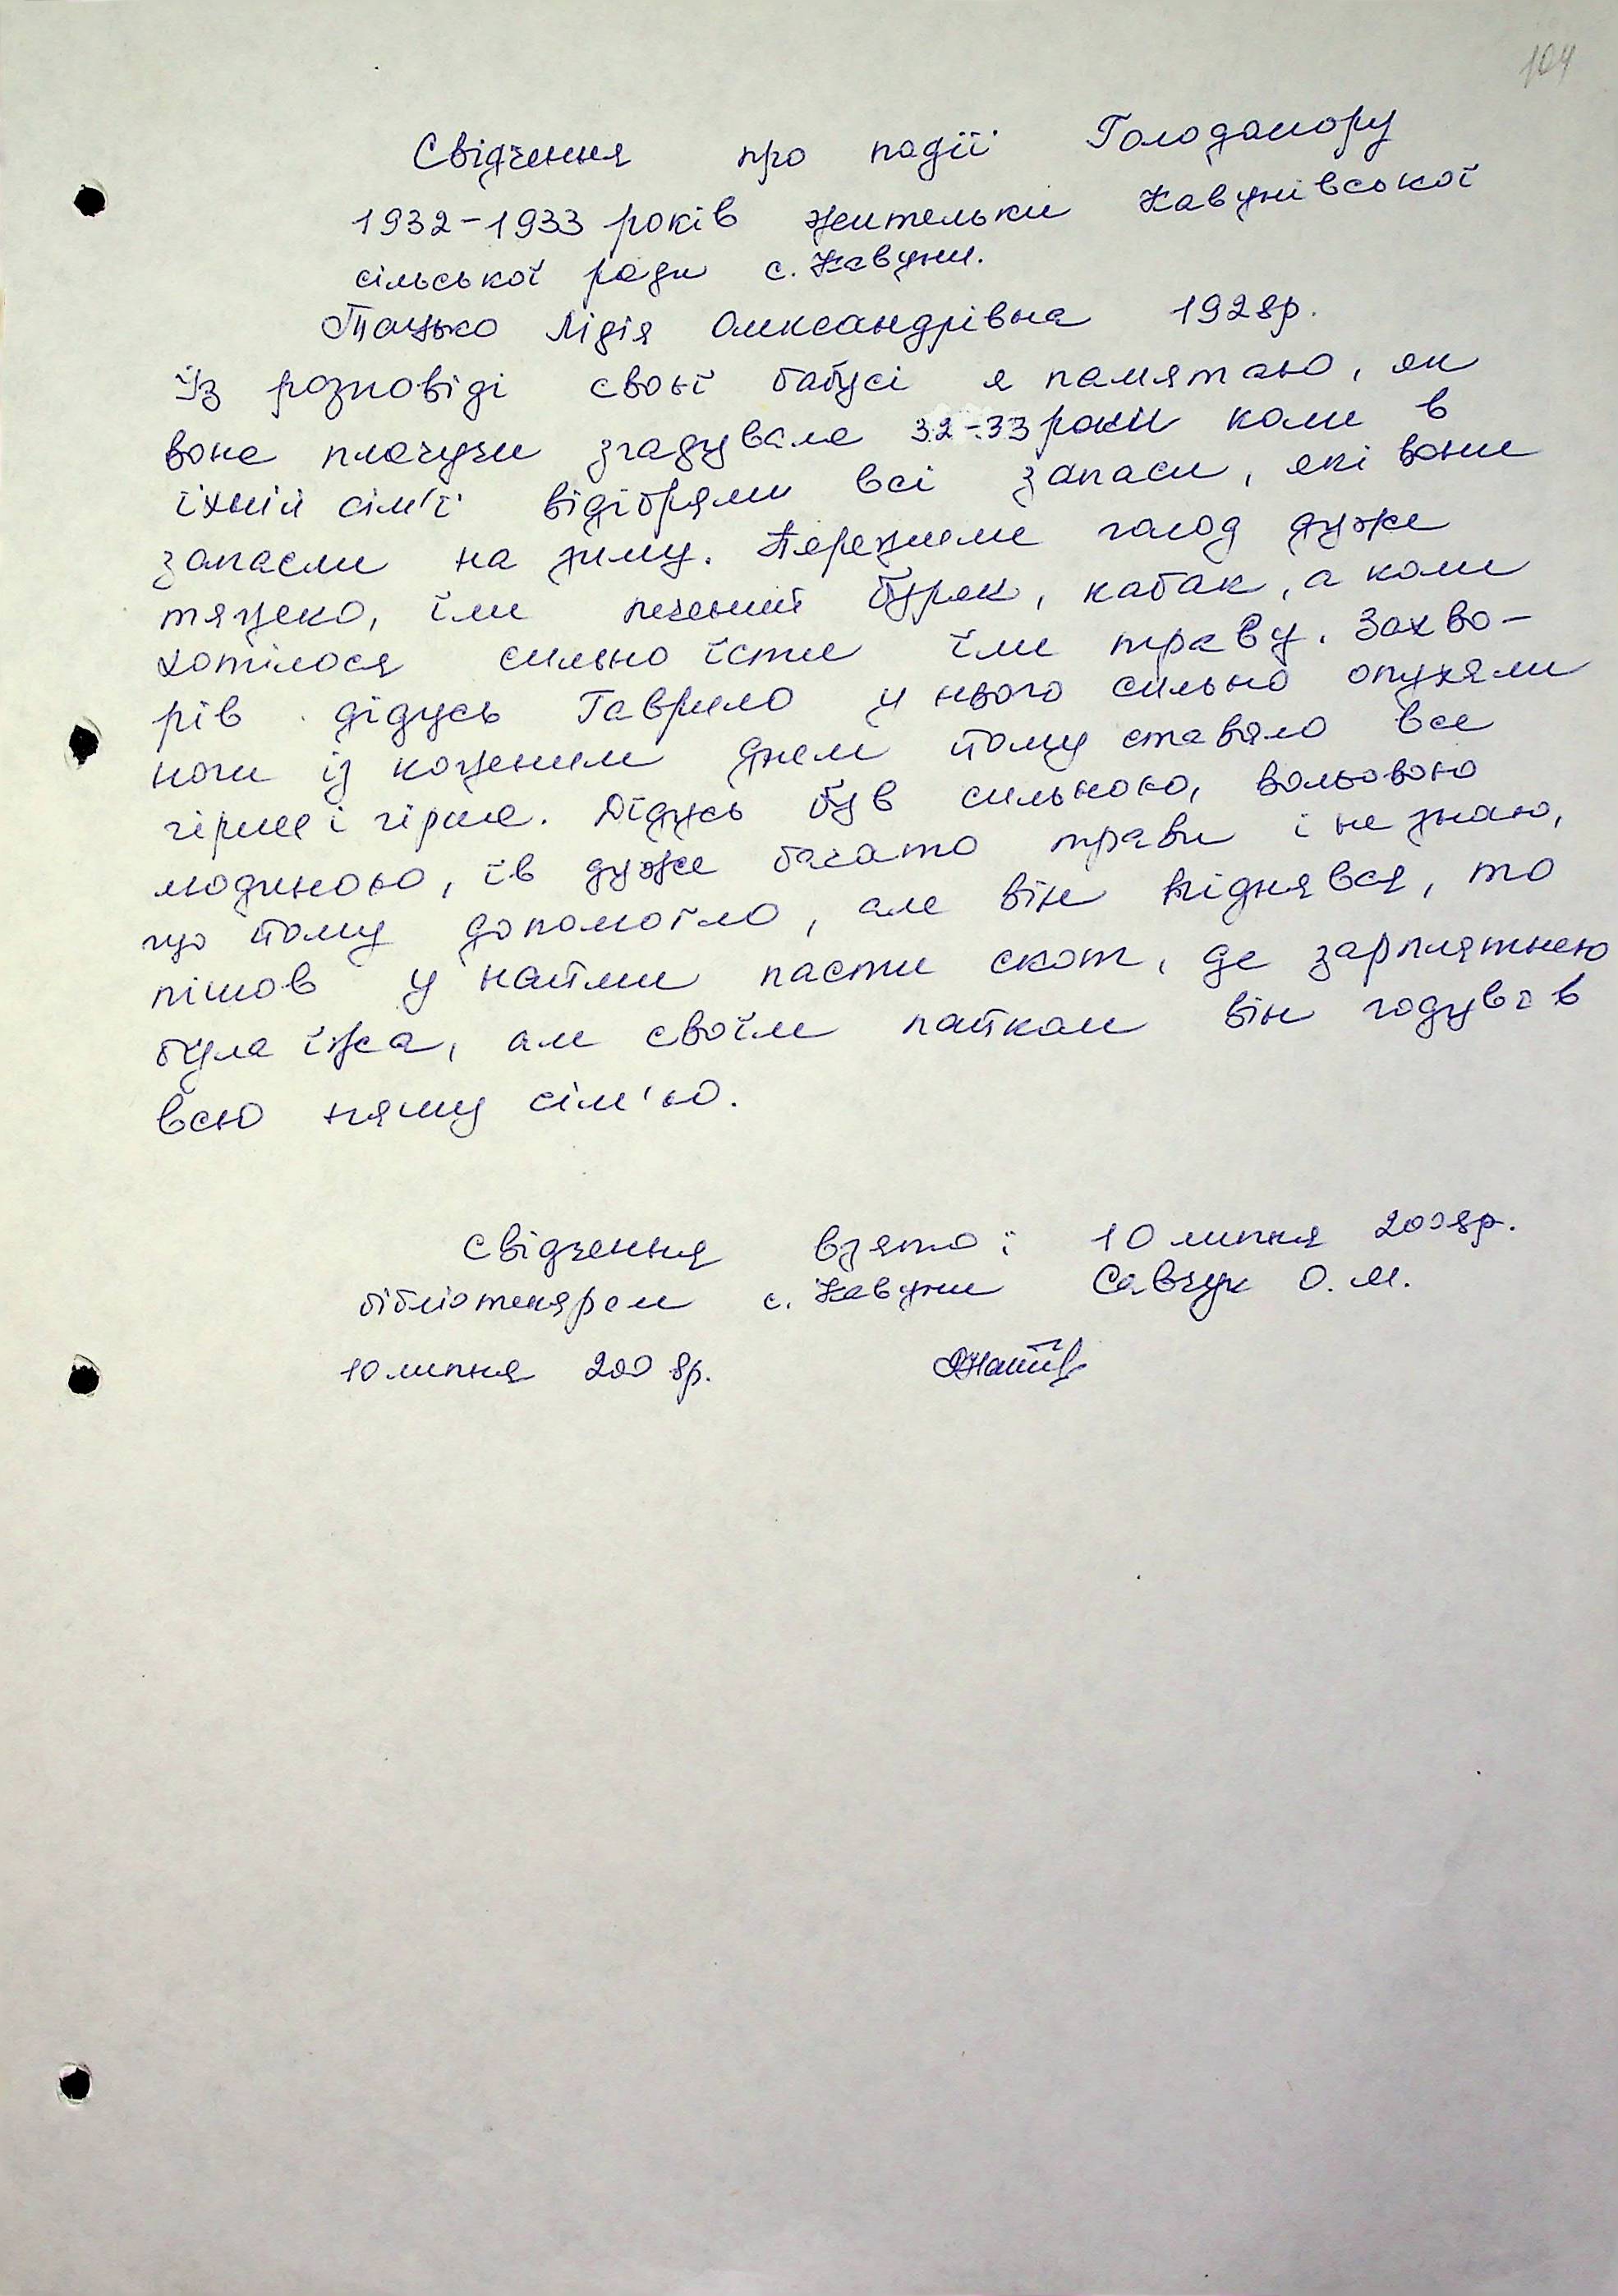 104
Свідчення про події Голодомору
1932-1933 років жительки Кавунівської
сільської ради с. Кавуни.
Тацько Лідія Олександрівна 1928р.
Із розповіді своєї бабусі я памятаю, як
вона плачучи згадувала 32-33 роки коли в
їхній сім'ї відібрали всі запаси, які вони
запасли на зиму. Пережили голод дуже
тяжко, їли печений буряк, кабак, а коли
хотілося сильно їсти їли траву. Захво-
рів дідусь Гаврило у нього сильно опухали
ноги із кожним днем йому ставало все
гірше і гірше. Дідусь був сильною, вольовою
людиною, їв дуже багато трави і не знаю,
що йому допомогло, але він піднявся, то
пішов у найми пасти скот, де зарплатнею
була їжа, але своїм пайком він годував
всю нашу сім'ю.
Свідчення взято: 10 липня 2008р.
бібліотекарем с. Кавуни Савчук О. М.
10 липня 2008р.